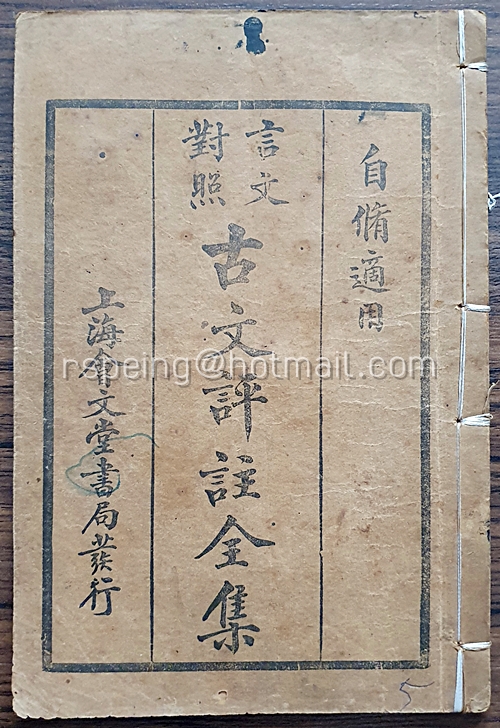 自脩適用
言文
對照
古文評註全集
上海會文堂書局發行
5